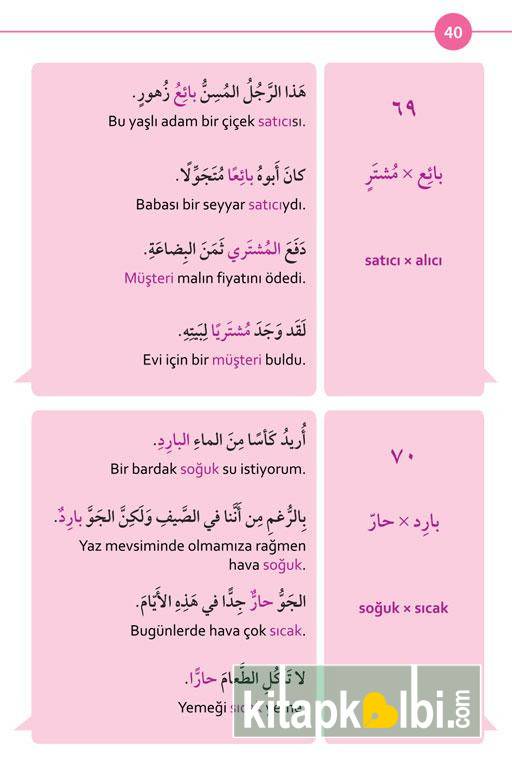 40
٦٩
بائِع × مُشتَرٍ
satıcı × alıcı
هَذا الرَّجُلُ المُسِنُّ بائِعُ زُهورٍ.
Bu yaşlı adam bir çiçek satıcısı.
كانَ أَبوهُ بائِعًا مُتَجَوِّلًا.
Babası bir seyyar satıcıydı.
دَفَعَ المُشتَري ثَمَنَ البِضاعَةِ.
Müşteri malın fiyatını ödedi.
لَقَد وَجَدَ مُشتَرِيًا لِبَيتِهِ.
Evi için bir müşteri buldu.
٧٠
بارِد × حارّ
soğuk × sıcak
أُريدُ كَأسًا مِنَ الماءِ البارِدِ.
Bir bardak soğuk su istiyorum.
بِالرُّغمِ مِن أَنَّنا في الصَّيفِ وَلَكِنَّ الجَوَّ بارِدٌ.
Yaz mevsiminde olmamıza rağmen
hava soğuk.
الجَوُّ حارٌّ جِدًّا في هَذِهِ الأَيّامَ.
Bugünlerde hava çok sıcak.
لا تَأكُلِ الطَّعامَ حارًّا.
Yemeği sıcak yeme.
kitapkalbi.com